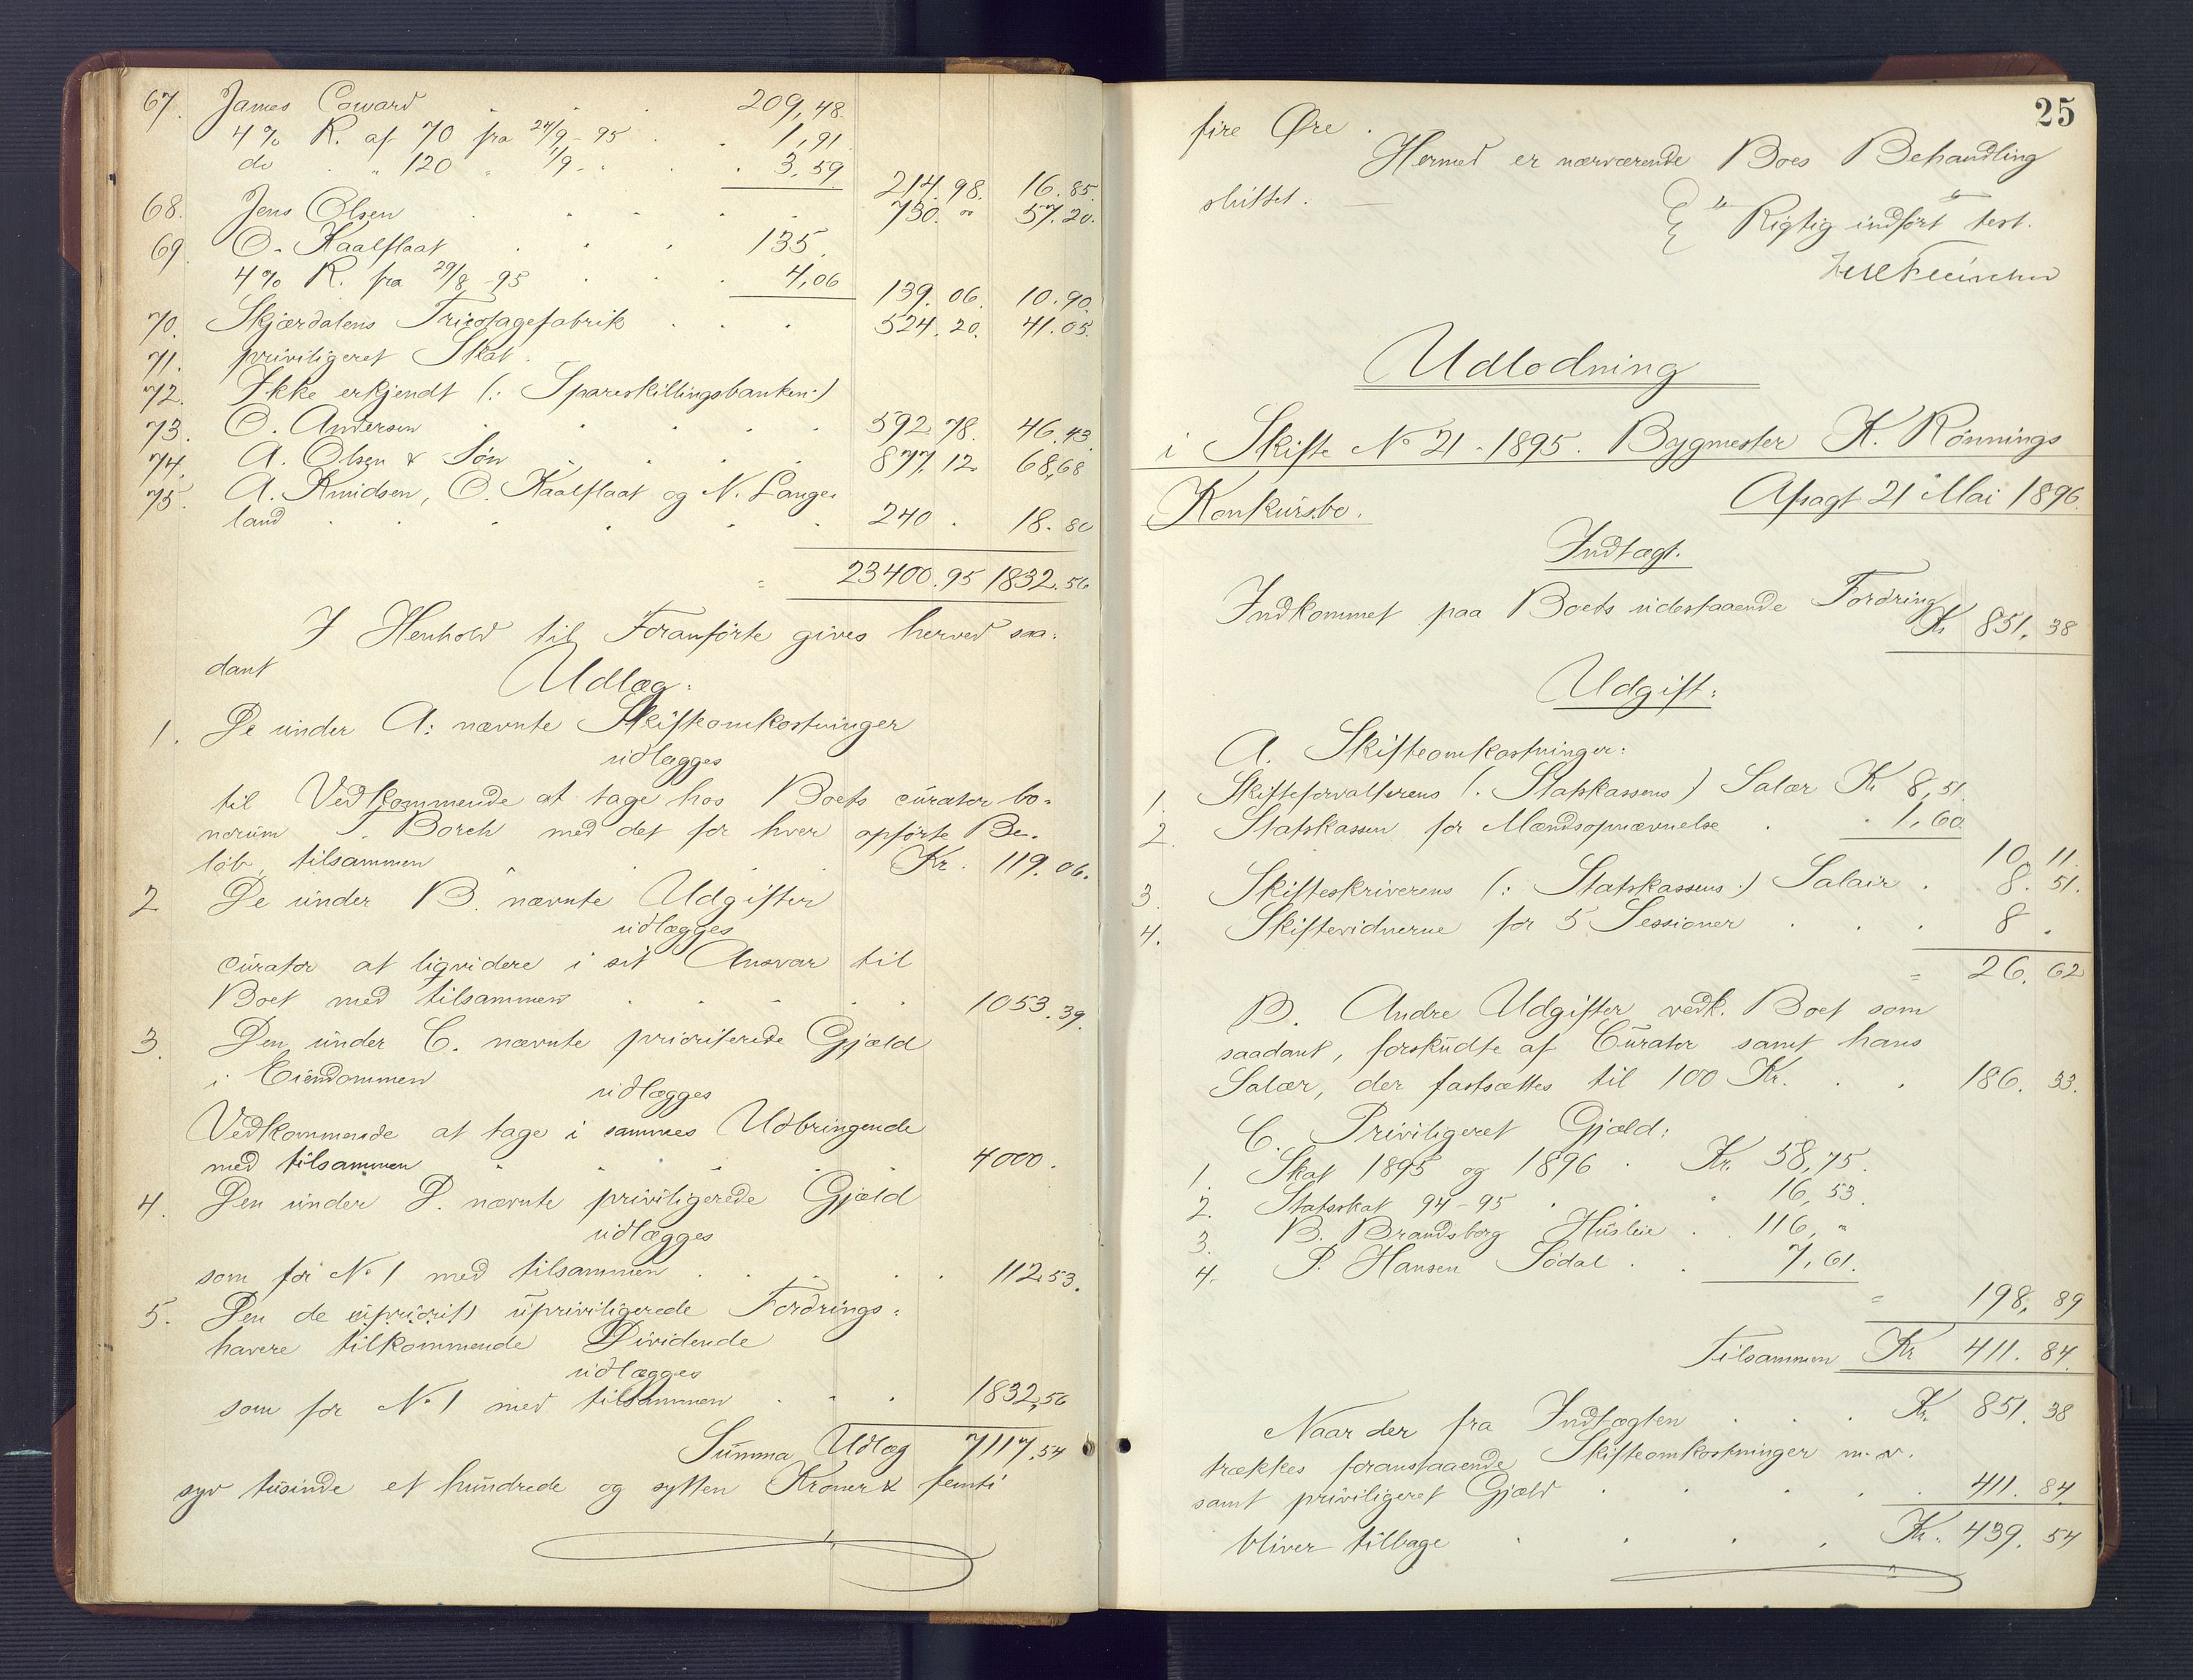 67. James Coward . . . 209,48.
4% R. af 70 fra 24/9-95 . . 1,91
do . „ 120 „ 7/9- „ . . 3,59
214.98. 16.85.
68. Jens Olsen . . . . 730. „ 57.20.
69. O. Kaalflaat . . . 135.
4% R. fra 29/8-95 . . . 4,06
139.06. 10.90.
70. Skjærdalens Tricotagefabrik . . . 524.20. 41.05.
71. priviligeret Skat.
72. Ikke erkjendt (: Spareskillingsbanken:)
73. O. Andersen . . . . 592.78. 46.43
74. A. Olsen & Søn . . . . 877.12 68,68
75. A. Knudsen, O. Kaalflaat og N. Lange-
land . . . . . 240. 18.80
= 23400.95 1832.56
I Henhold til Foranførte gives herved saa-
dant
Udlæg:
1. De under A: nævnte Skifteomkostninger
udlægges
til Vedkommende at tage hos Boets curator bo-
norum J. Borch med det for hver opførte Be-
løb, tilsammen . . . Kr. 119.06.
2 De under B. nævnte Udgifter
udlægges
curator at liqvidere i sit Ansvar til
Boet med tilsammen . . . . 1053.39.
3. Den under C. nævnte prioriterede Gjæld
i Eiendommen
udlægges
Vedkommende at tage i sammes Udbringende
med tilsammen . . . . . 4000.
4. Den under D. nævnte priviligerede Gjæld
udlægges
som for No 1 med tilsammen . . . . . 112,53.
5. Den de upriviligerede Fordrings-
havere tilkommende Dividende
udlægges
som for No 1 med tilsammen . . . 1832,56
Summa Udlæg 7117,54
syv tusinde et hundrede og sytten Kroner & femti
25
fire Øre.
Hermed er nærværende Boes Behandling
sluttet. —
Rigtig indført test.
Udlodning
i Skifte No 21-1895. Bygmester K. Rønnings
Konkursbo. Afsagt 21 Mai 1896.
Indtægt.
Indkommet paa Boets udestaaende Fordring
Kr 851,38
Udgift:
A. Skifteomkostninger:
1. Skifteforvalterens (: Statskassens) Salær Kr 8,51.
2. Statskassen for Mændsopnævnelse . . 1,60
10 11.
3. Skifteskriverens (: Statskassens:) Salair . 8. 51.
4. Skiftevidnerne for 5 Sessioner . . . 8 .
= 26.62
B. Andre Udgifter vedk. Boet som
saadant, forskudte af Curator samt hans
Salær, der fastsættes til 100 Kr. . . 186.33.
C. Priviligeret Gjæld:
1. Skat 1895 og 1896 . Kr. 58,75.
2. Statsskat 94-95 . . . 16,53.
3. B. Brandsborg Husleie . 116, „
4. P. Hansen Sødal . . 7,61.
= 198,89
Tilsammen Kr 411.84.
Naar der fra Indtægten . . . Kr. 851.38
trækkes foranstaaende Skifteomkostninger m.v.
samt priviligeret Gjæld . . . . 411.84.
bliver tilbage . . . . Kr. 439.54